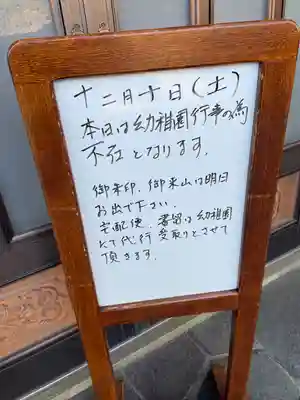 十二月十日(土)
本日は幼稚園行事の為
不在となります。
御朱印、御来山は明日
お出で下さい。
宅配便、書留は幼稚園
にて代行受取りとさせて
頂きます。